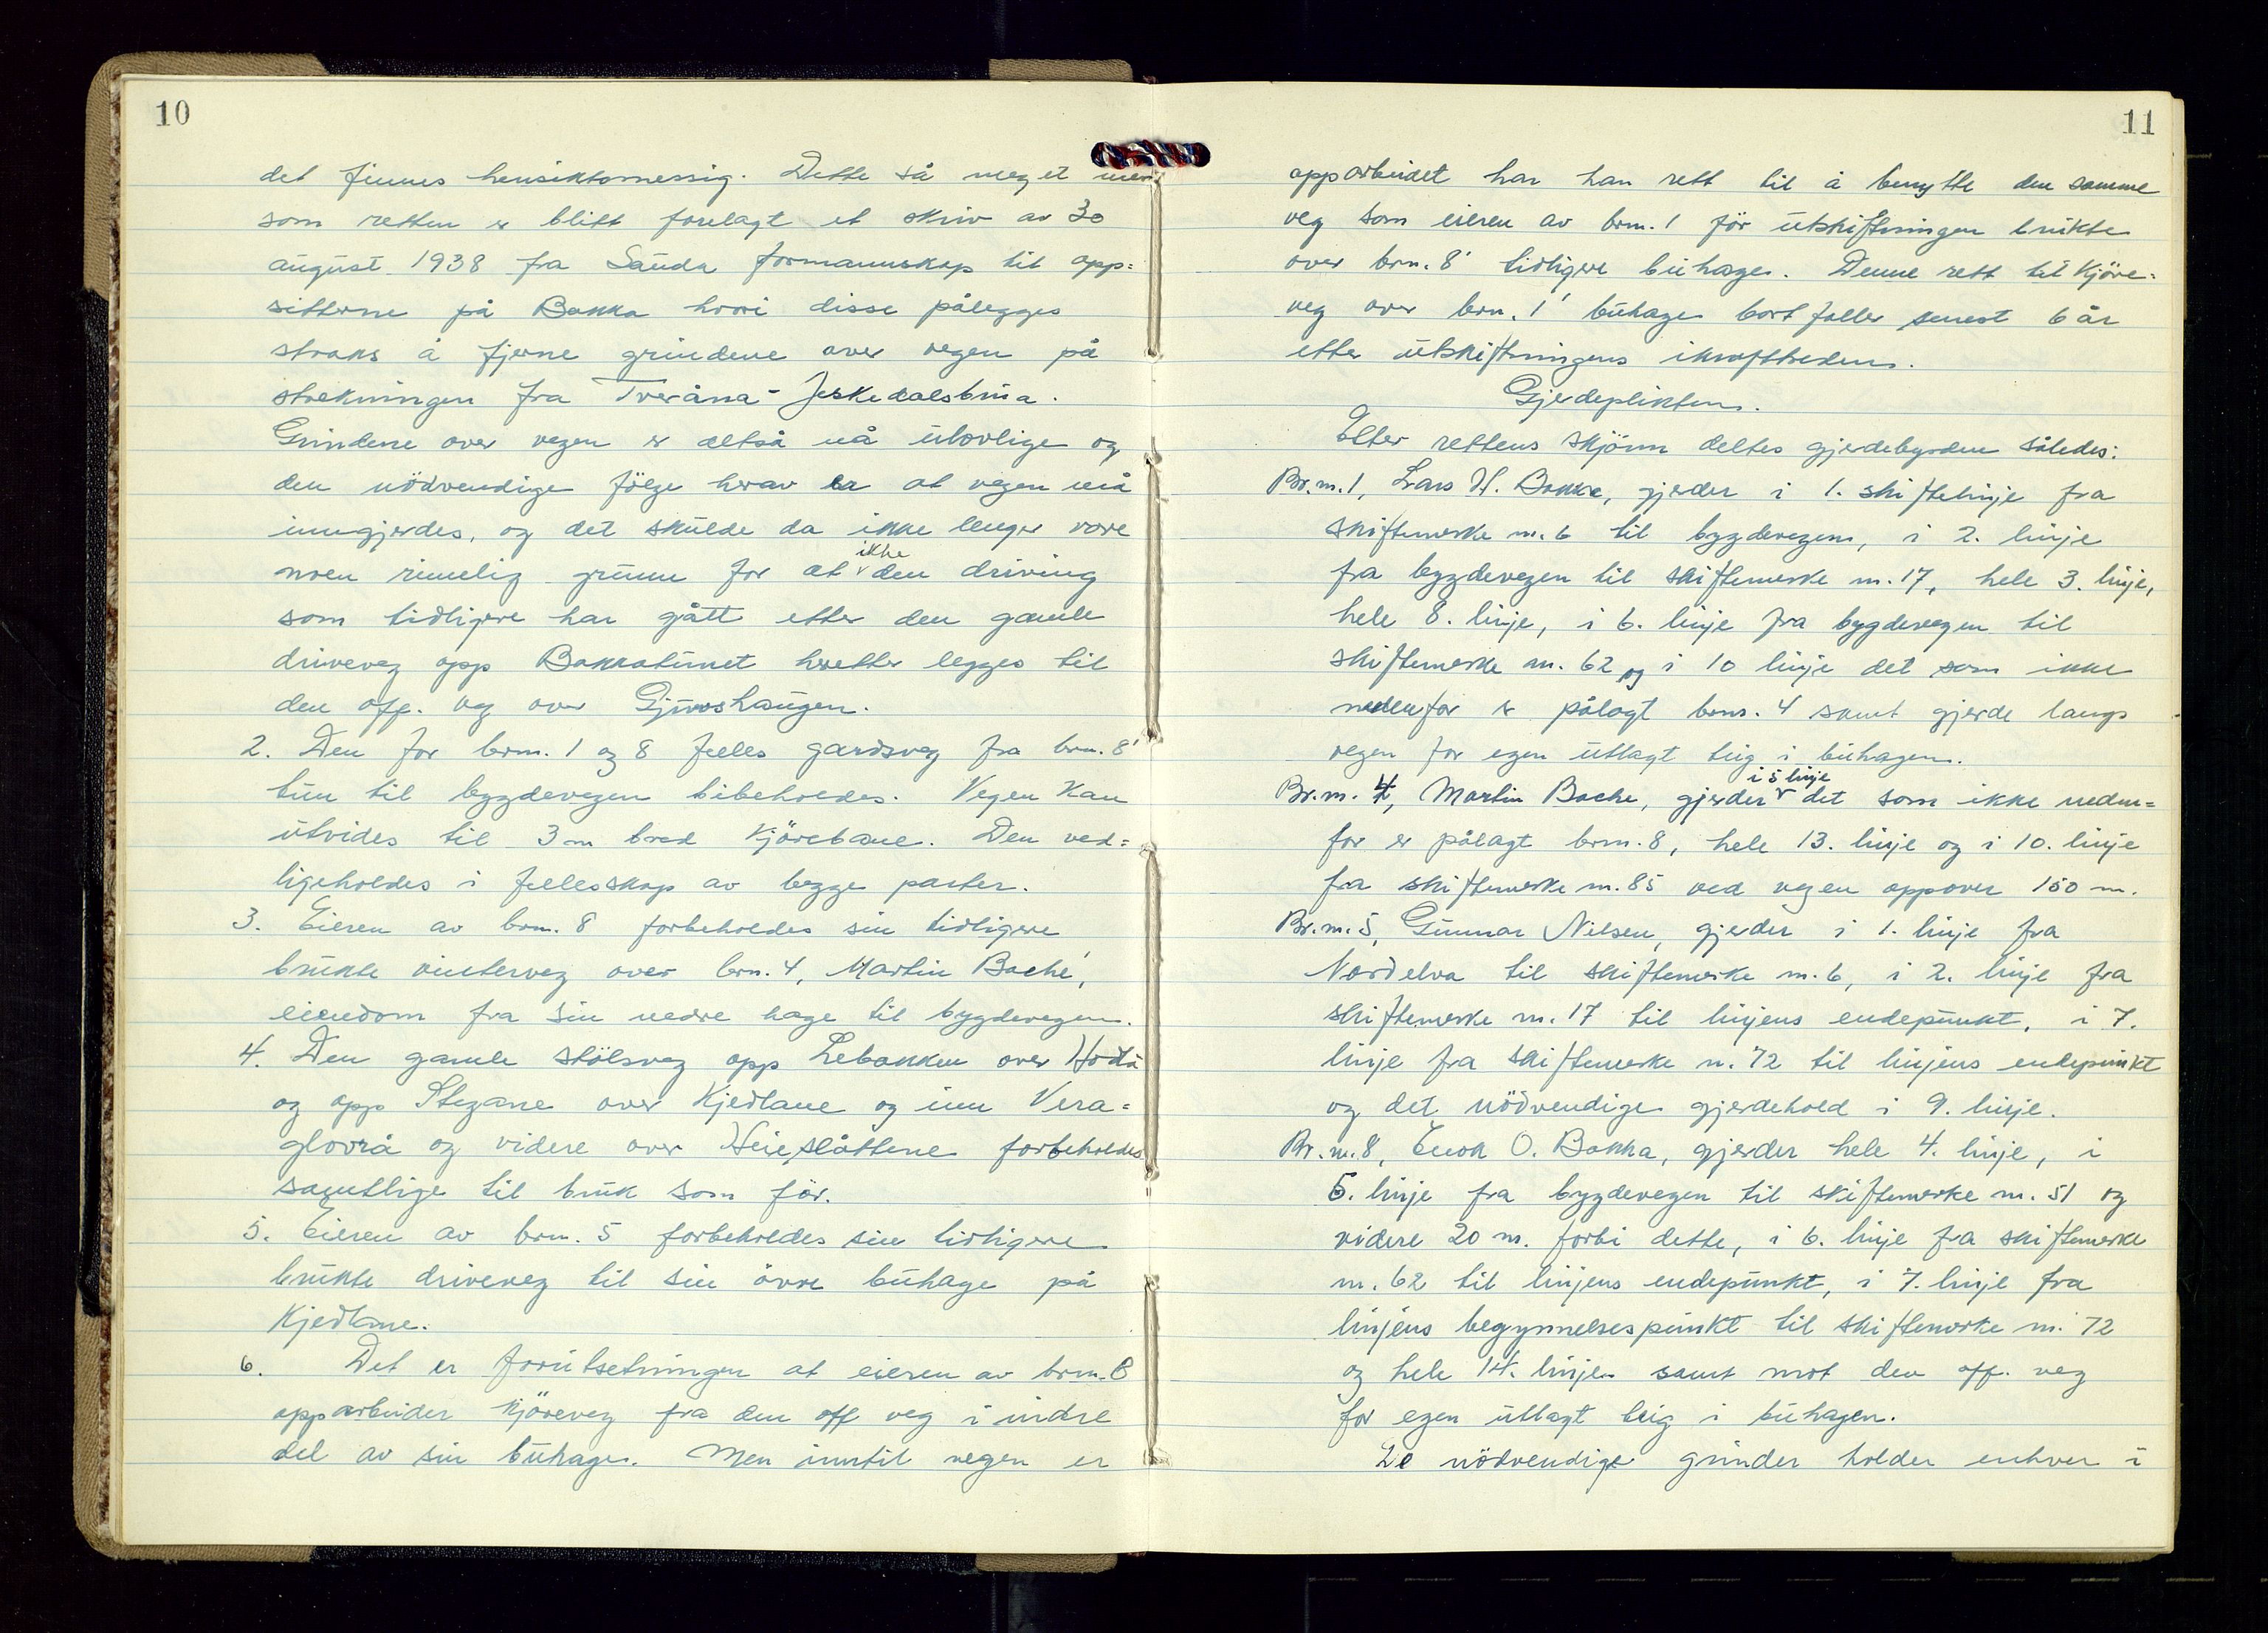 10
det finnes hensiktsmessig. Dette så meget mer
som retten er blitt forelagt et skriv av 30
august 1938 fra Sauda formannskap til opp=
sitterne på Bakka hvori disse pålegges
straks å fjerne grindene over vegen på
strekningen fra Tveråna - Jeskedalsbrua.
Grindene over vegen er altså nå ulovlige og
den nödvendige fölge herav er at vegen må
inngjerdes, og det skulde da ikke lenger være
noen rimelig grunn for at ikke den driving
som tidligere har gått etter den gamle
driveveg opp Bakkatunet heretter legges til
den off. veg over Gjuvshaugen.
2. Den for brn. 1 og 8 felles gardsveg fra brn. 8'
tun til bygdevegen bibeholdes. Vegen kan
utvides til 3 m bred kjörebane. Den ved=
ligeholdes i fellesskap av begge parter.
3. Eieren av brn. 8 forbeholdes sin tidligere
brukte vinterveg over brn. 4, Martin Bache',
eiendom fra sin nedre hage til bygdevegen.
4. Den gamle stölsveg opp Lebakken over Hodå
og opp Stegane over Kjedlane og inn Vera=
glovrå og videre over Heieslåttene forbeholdes
samtlige til bruk som för.
5. Eieren av brn. 5 forbeholdes sin tidligere
brukte driveveg til sin övre buhage på
Kjedlane.
6. Det er forutsetningen at eieren av brn. 8
opparbeider kjöreveg fra den off veg i indre
del av sin buhage. Men inntil vegen er
11
opparbeidet har han rett til å benytte den samme
veg som eieren av brn. 1 för utskiftningen brukte
over brn. 8' tidligere buhage. Denne rett til kjöre=
veg over brn. 1' buhage bortfaller senest 6 år
etter utskiftningens ikrafttreden.
Gjerdeplikten.
Etter rettens skjönn deltes gjerdebyrden således:
Br.n. 1, Lars H. Bakka, gjerder i 1. skiftelinje fra
skiftemerke nr. 6 til bygdevegen, i 2. linje
fra bygdevegen til skiftemerke nr. 17, hele 3. linje,
hele 8. linje, i 6. linje fra bygdevegen til
skiftemerke nr. 62 og i 10 linje det som ikke
nedenfor er pålagt brnr. 4 samt gjerde langs
vegen for egen utlagt teig i buhagen.
Br.nr. 4, Martin Bache, gjerder i 5 linje det som ikke neden=
for er pålagt brnr. 8, hele 13. linje og i 10. linje
fra skiftemerke nr. 85 ved vegen oppover 150 m.
Br.nr. 5, Gunnar Nilsen, gjerder i 1. linje fra
Nordelva til skiftemerke nr. 6, i 2. linje fra
skiftemerke nr. 17 til linjens endepunkt, i 7.
linje fra skiftemerke nr. 72 til linjens endepunkt
og det nödvendige gjerdehold i 9. linje.
Br.nr. 8, Enok O. Bakka, gjerder hele 4. linje, i
5. linje fra bygdevegen til skiftemerke nr. 51 og
videre 20 m. forbi dette, i 6. linje fra skiftemerke
nr. 62 til linjens endepunkt, i 7. linje fra
linjens begynnelsespunkt til skiftemerke nr. 72
og hele 14. linjen samt mot den off. veg
for egen utlagt teig i buhagen.
De nödvendige grinder holder enhver i